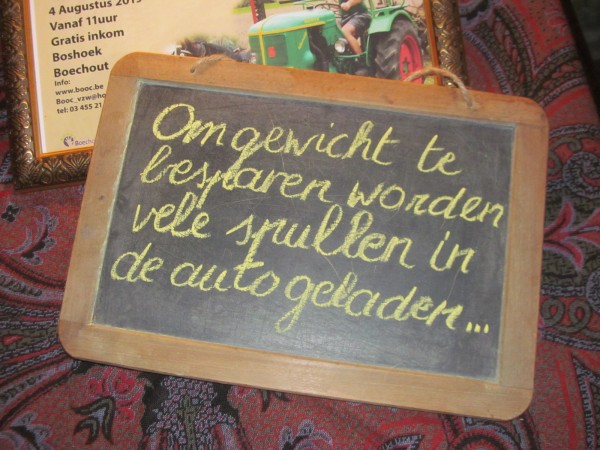 4 Augustus 201
Vanaf 11uur
Gratis inkom
Boshoek
Boechout
Info:
www.booc.be
Booc_vzw@ho
tel: 03 455 21
Boech
Om gewicht te
besparen worden
vele spullen in
de auto geladen...